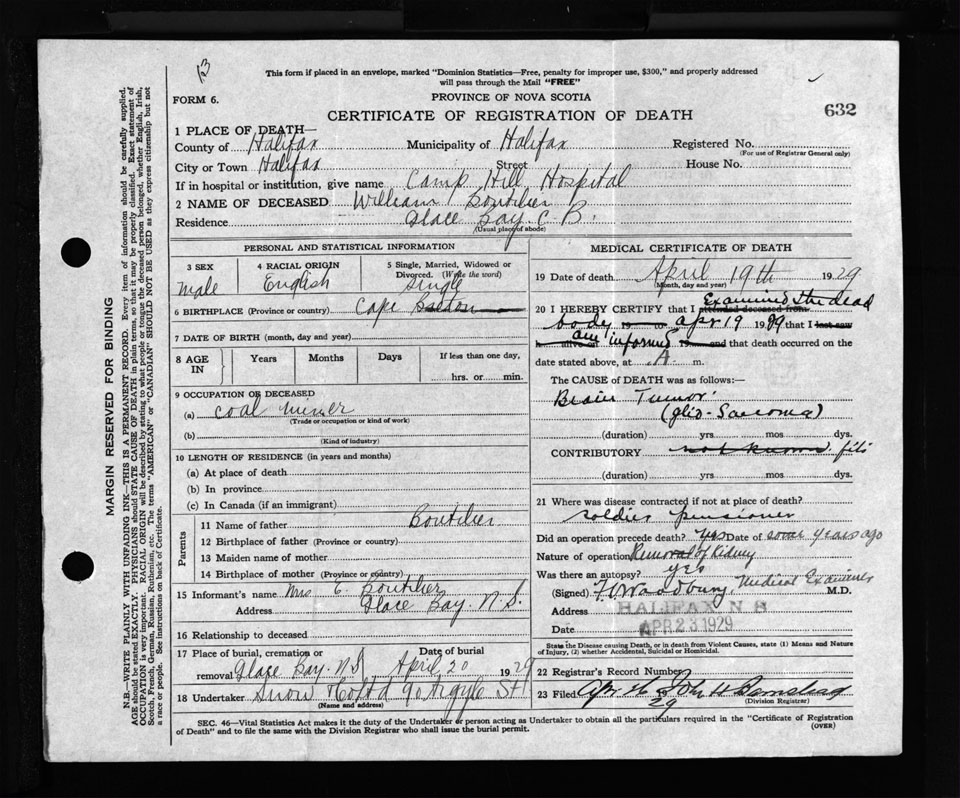 13
This form if placed in an envelope, marked "Dominion Statistics—Free, penalty for improper use, $300," and properly addressed
will pass through the Mail "FREE"
FORM 6.
PROVINCE OF NOVA SCOTIA
CERTIFICATE OF REGISTRATION OF DEATH
632
1 PLACE OF DEATH—
County of Halifax Municipality of Halifax Registered No.
(For use of Registrar General only)
City or Town Halifax Street House No.
If in hospital or institution, give name Camp Hill Hospital
2 NAME OF DECEASED William Boutilier
Residence Glace Bay C B.
(Usual place of abode)
MARGIN RESERVED FOR BINDING
N.B.—WRITE PLAINLY WITH UNFADING INK—THIS IS A PERMANENT RECORD. Every item of information should be carefully supplied.
AGE should be stated EXACTLY. PHYSICIANS should STATE CAUSE OF DEATH in plain terms, so that it may be properly classified. Exact statement of
OCCUPATION is very important. RACIAL ORIGIN will be described by stating to what people or tongue the deceased person belonged, whether English, Irish,
Scotch, French, German, Russian, Ruthenian, etc. The terms "AMERICAN" or "CANADIAN" SHOULD NOT BE USED as they express citizenship but not
a race or people. See instructions on back of Certificate.
PERSONAL AND STATISTICAL INFORMATION
3 SEX
male
4 RACIAL ORIGIN
English
5 Single, Married, Widowed or
Divorced. (Write the word)
single
6 BIRTHPLACE (Province or country) Cape Breton
7 DATE OF BIRTH (month, day and year)
8 AGE IN Years Months Days If less than one day,
hrs. or min.
9 OCCUPATION OF DECEASED
(a) coal miner
(Trade or occupation or kind of work)
(b)
(Kind of industry)
10 LENGTH OF RESIDENCE (in years and months)
(a) At place of death
(b) In province
(c) In Canada (if an immigrant)
Parents
11 Name of father Boutilier
12 Birthplace of father (Province or country)
13 Maiden name of mother
14 Birthplace of mother (Province or country)
15 Informant's name Mrs C. Boutilier
Address Glace Bay. N.S.
16 Relationship to deceased
17 Place of burial, cremation or Date of burial
removal Glace Bay. N.S. April 20 1929
18 Undertaker Snow & Co Ltd 90 Argyle St
(Name and address)
MEDICAL CERTIFICATE OF DEATH
19 Date of death April 19th 1929
(Month, day and year)
20 I HEREBY CERTIFY that I attended deceased from Examined the dead
body 19 to apr 19 1929 that I last saw
h alive on am informed 19 and that death occurred on the
date stated above, at A m.
The CAUSE of DEATH was as follows:—
Brain Tumor
(glio-Sarcoma)
(duration) yrs mos dys.
CONTRIBUTORY not known fits
(duration) yrs mos dys.
21 Where was disease contracted if not at place of death?
soldier pensioner
Did an operation precede death? yes Date of some years ago
Nature of operation Removal of Kidney
Was there an autopsy? yes
(Signed) Woodbury, Medical Examiner M.D.
Address HALIFAX N S
Date APR 23 1929
State the Disease causing Death, or in death from Violent Causes, state (1) Means and Nature
of Injury, (2) whether Accidental, Suicidal or Homicidal.
22 Registrar's Record Number
23 Filed Apr 29
(Division Registrar)
SEC. 46—Vital Statistics Act makes it the duty of the Undertaker or person acting as Undertaker to obtain all the particulars required in the "Certificate of Registration
of Death" and to file the same with the Division Registrar who shall issue the burial permit.
(OVER)